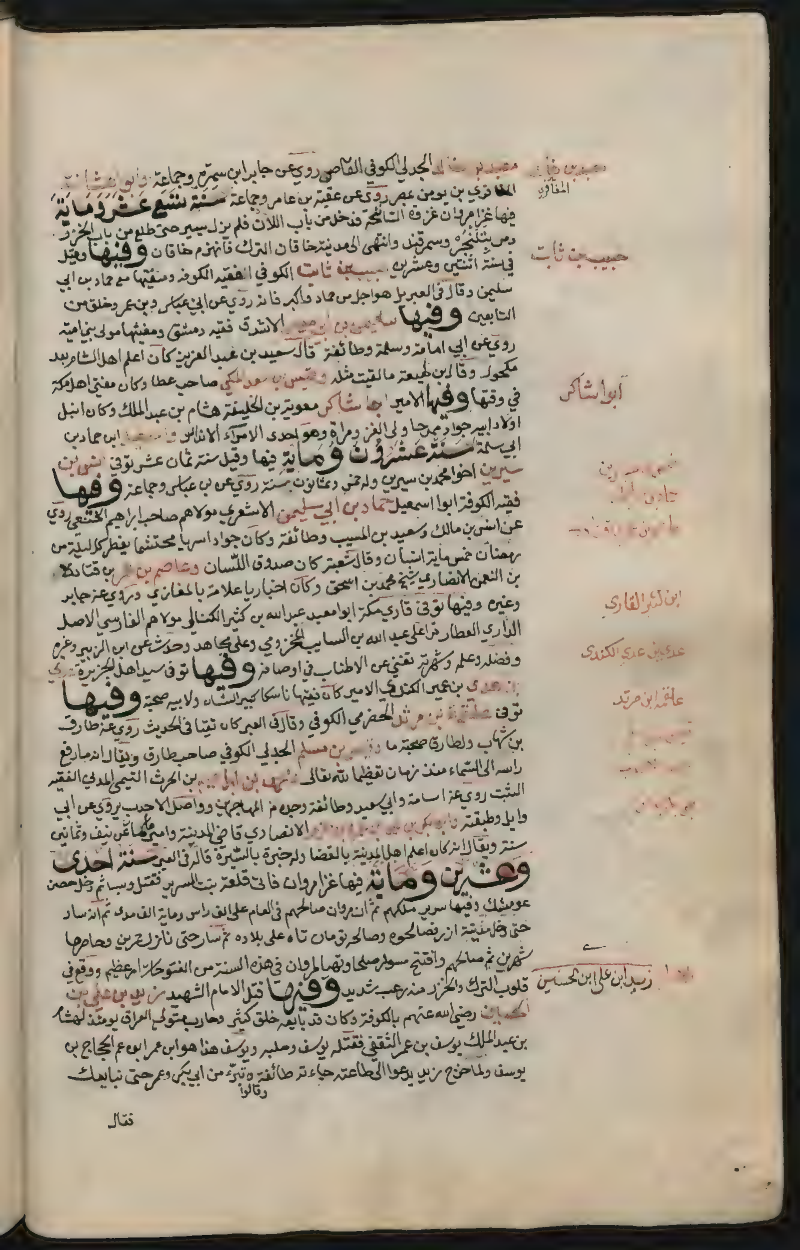 معبد بن خالد الجدلي الكوفي القاص روي عن جابر ابن سمرة وجماعة وابو عشانة
المعافري بن يومن بمصر روي عن عقبة بن عامر وجماعة سنة تسع عشر وماية
فيها غزا مروان غزوة السانحة فدخل من باب اللان فلم يزل يسير حتى طلع من باب الخزر
ومر ببلنجر وسمرقند وانتهى الى مدينة خاقان الترك فانهزم خاقان وفيها وقيل
في سنة اثنتين وعشرين حبيب بن ثابت الكوفي الفقيه الكوفة ومفتيها مع حماد بن ابي
سليمن وقال في العبر بل هو اجل من حماد واكبر فانه روي عن ابن عباس وبن عمر وخلق من
التابعين وفيها سليمن بن موسى الاشدق فقيه دمشق ومفتيها مولى بني امية
روي عن ابي امامة وسلمة وطائفة قال سعيد بن عبد العزيز كان اعلم اهل الشام بعد
مكحول وقال ابن لهيعة ما لقيت مثله وقيس بن سعد المكي صاحب عطا وكان مفتي اهل مكة
في وقتها وفيها الامير ابو شاكر معوية بن الخليفة هشام بن عبد الملك وكان انبل
اولاد ابيه جواد ممدحا ولي الغزو مراة وهو احدى الامراء الاندلس
ابي سلمة سنة عشرون وماية فيها وقيل سنة ثمان عشر توفي انس بن
سيرين اخو محمد بن سيرين وله خمس وثمانون سنة روي عن بن عباس وجماعة وفيها
فقيه الكوفة ابوا اسمعيل حماد بن ابي سليمن الاشعري مولاهم صاحب ابراهيم النخعي روي
عن انس بن مالك وسعيد بن المسيب وطائفة وكان جواد اسريا محتشما يفطر كل ليلة من
رمضان خمس ماية انسان وقال شعبة كان صدوق اللسان وعاصم بن عمر بن قتادة
بن النعمن الانصاري شيخ محمد بن اسحق وكان اخباريا علامة بالمغازي وروي عن جابر
وغيره وفيها توفي قاري مكة ابوا معبد عبد الله بن كثير الكناني مولاهم الفارسي الاصل
الداري العطار قرا على عبد الله بن السايب المخزومي وعلى مجاهد وحدث عن ابن الزبير وغيره
وفضله وعلمه وشهرته تغني عن الاطناب في اوصافه وفيها توفي سيد اهل الجزيرة عدي
بن عدي بن عمير الكندي الامير كان فقيها ناسكا كبير الشان ولابيه صحبة وفيها
توفي علقمة بن مرثد الحضرمي الكوفي وقال في العبر كان ثبتا في الحديث روي عن طارق
بن شهاب ولطارق صحبة ما وقيس بن مسلم الجدلي الكوفي صاحب طارق ويقال انه ما رفع
راسه الى السماء منذ زمان تعظيما لله تعالى ومحمد بن ابراهيم بن الحرث التيمي المدني الفقيه
الثبت روي عن اسامة وابي سعيد وطائفة وجده من المهاجرين وواصل الاحدب يروي عن ابي
وايل وطبقته وابو بكر بن محمد بن عمرو بن حزم الانصاري قاضي المدينة واميرها عن نيف وثمانين
سنة ويقال انه كان اعلم اهل المدينة بالقضا وله خبرة بالسيرة قاله في العبر سنة احدى
وعشرين وماية فيها غزا مروان فاتى قلعة بيت السرير فقتل وسبا ثم دخل حصن
عوميشك وفيها سرير ملكهم ثم ان مروان صالحهم في العام على الف راس وماية الف مدي ثم انه سار
حتى دخل مدينة ازر فصالحوه وصالح تومان شاه على بلاده ثم سار حتى نازل حمزين وحاصرها
شهرين ثم صالحهم وافتتح مسدار صلحا وتهيا لمروان في هذه السنة من الفتوحات امر عظيم ووقع في
قلوب الترك والخزر منه رعب شديد وفيها قتل الامام الشهيد زيد بن علي بن
الحسين رضي الله عنهم بالكوفة وكان قد بايعه خلق كثير وحارب متولي العراق يومئذ لهشام
بن عبد الملك يوسف بن عمر الثقفي فقتله يوسف وصلبه ويوسف هذا هو ابن عمر ابن عم الحجاج بن
يوسف ولما خرج زيد يدعوا الى طاعته جاءته طائفة وقالوا تبرء من ابي بكر وعمر حتى نبايعك
فقال
معبد بن خالد
المعافري
حبيب بن ثابت
ابوا شاكر
ابن كثير القاري
عدي بن عدي الكندي
علقمه ابن مرثد
زيد ابن علي ابن الحسين